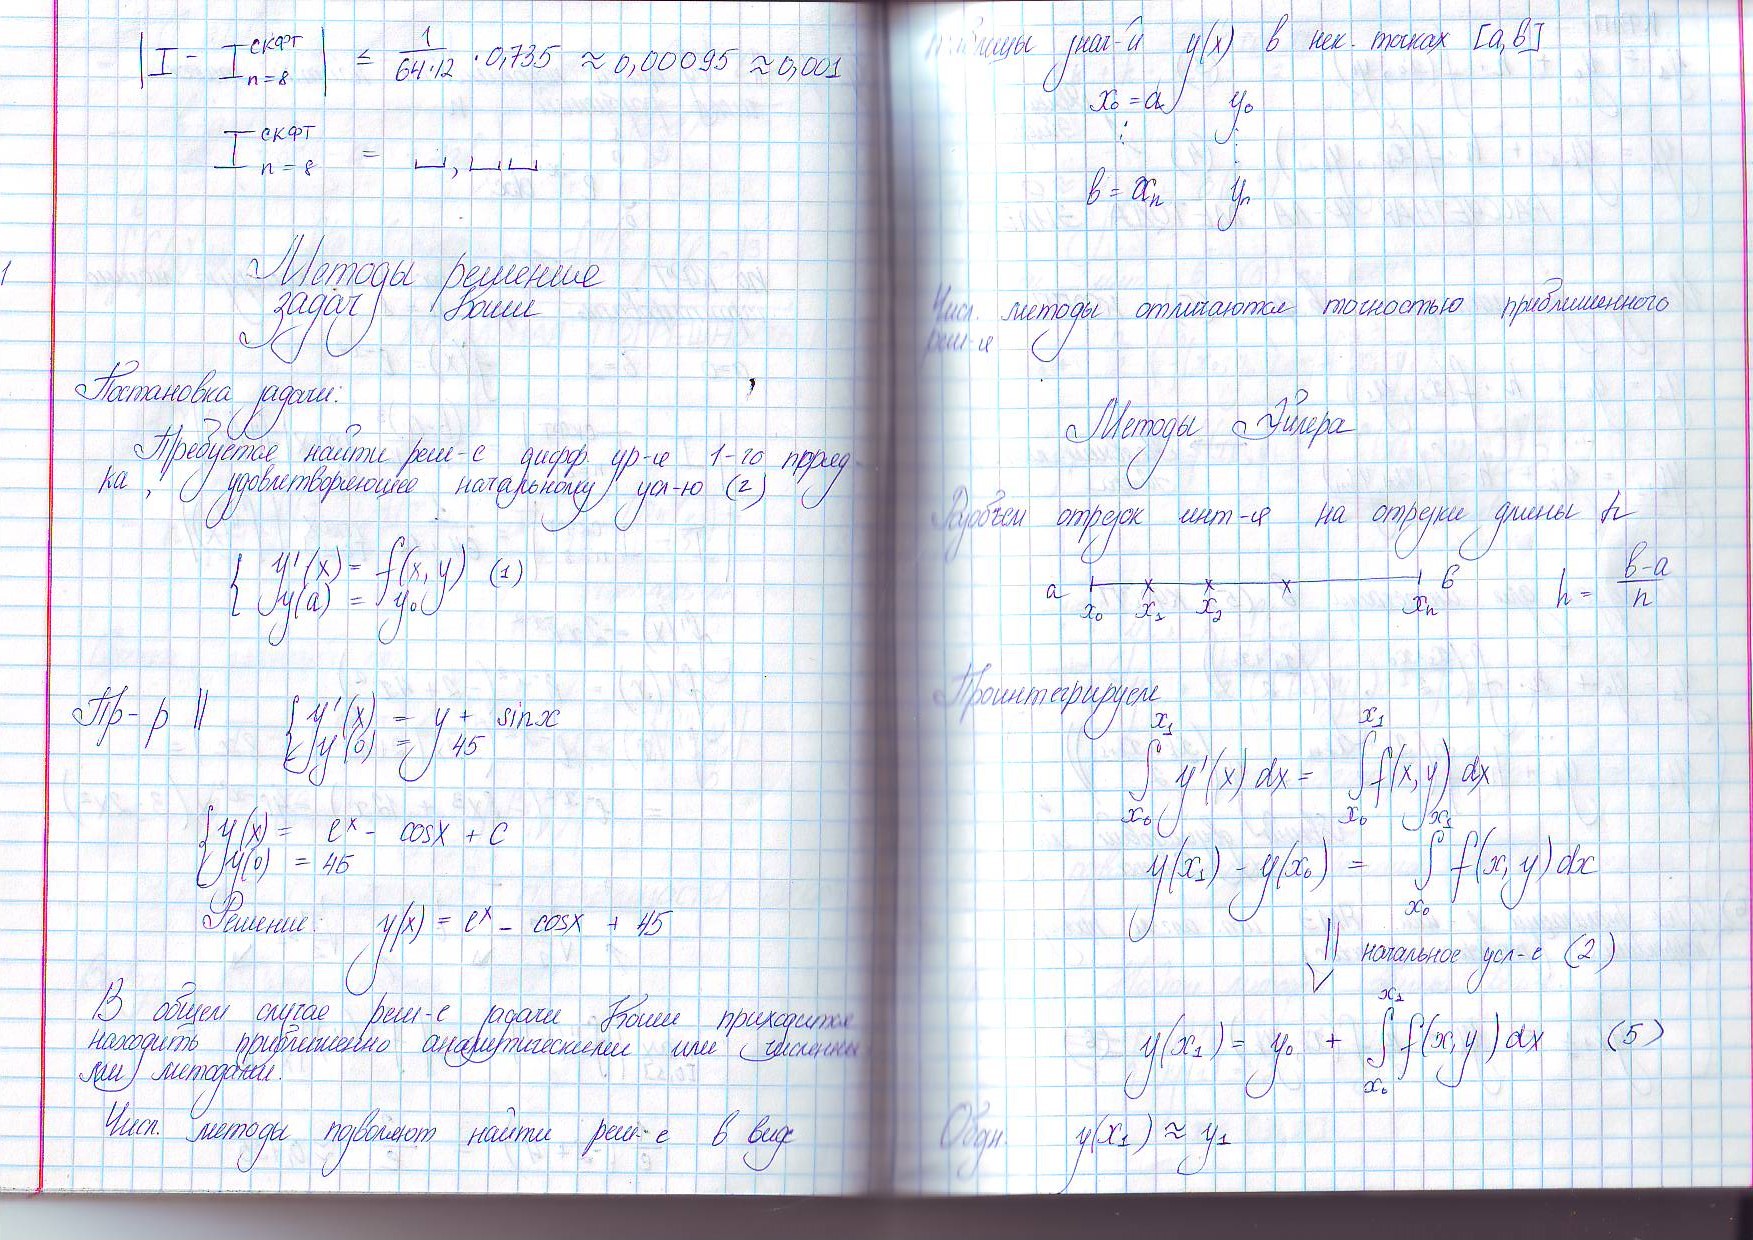 |I - I скфт n=8| ≤ 1/(64·12) · 0,735 ≈ 0,00095 ≈ 0,001
I скфт n=8 = ⎵,⎵⎵
Методы решение
задач Коши
Постановка задачи:
Требуется найти реш-е дифф. ур-я 1-го
ка, удовлетворяющее начальному усл-ю (2)
{ y'(x) = f(x,y) (1)
y(a) = y₀
Пр-р || { y'(x) = y + sinx
y(0) = 45
{ y(x) = eˣ - cosx + c
y(0) = 45
Решение: y(x) = eˣ - cosx + 45
В общем случае реш-е задачи Коши приходится
находить приближенно аналитическими или численны
ми методами.
Числ. методы позволяют найти реш-е в виде
таблицы знач-й y(x) в нек. точках [a,b]
x₀ = a y₀
⋮ ⋮
b = xₙ yₙ
Числ. методы отличаются точностью приближенного
реш-я
Методы Эйлера
Разобьем отрезок инт-я на отрезки длины h
a x₀ x₁ x₂ xₙ b h = (b-a)/n
Проинтегрируем
∫ₓ₀ˣ¹ y'(x) dx = ∫ₓ₀ˣ¹ f(x,y) dx
y(x₁) - y(x₀) = ∫ₓ₀ˣ¹ f(x,y) dx
⇓ начальное усл-е (2)
y(x₁) = y₀ + ∫ₓ₀ˣ¹ f(x,y) dx (5)
Обозн: y(x₁) ≈ y₁
1